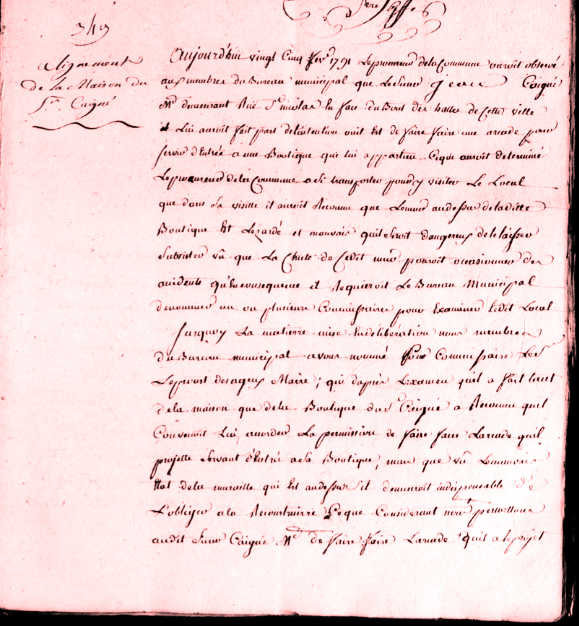 349
alignement
de la Maison du
Sr. Caigné
Aujourd'hui vingt cinq fevr. 1791 Le procureur de la Commune auroit observé
aux membres du Bureau municipal que Le Sieur Caigné
Md. demeurant Rue St. nicolas la face du Bout des halles de Cette ville
Lui auroit fait part de l'intention ouil Est de faire faire une arcade pour
servir d'Entrée a une Boutique que lui appartien. Ce que auroit determiné
Le procureur de la Commune a se transporter pour y visiter Le Local
que dans Sa visitte il auroit Reconnu que Lemur au dessus de la ditte
Boutique Est Lezardé et mauvais quil seroit dangereux de le laisser
Subsister vû que La Chute de Cedit mur pouroit occasionner des
accidents et Requieroit Le Bureau Municipal
de nommer un ou plusieurs Commissaires pour Examiner Ledit Local
Surquoy La matierre mise En deliberation nous membres
du Bureau municipal avons nommé pour Commissaire
Maire; qui d'apres L'examen quil a fait tant
de la maison que de la Boutique du Sr. Caigné a Reconnu quil
Convenoit Lui accorder La permission de faire faire Larcade quil
projette Servant d'Entrée a Sa Boutique; mais que vû Lemauvais
Etat de la muraille qui Est au dessus il demeuroit indispensable de
L'obliger a la Reconstruirre Ce que Considerant permettons
audit Sieur Caigné Md. de faire faire Larcade quil a le projet